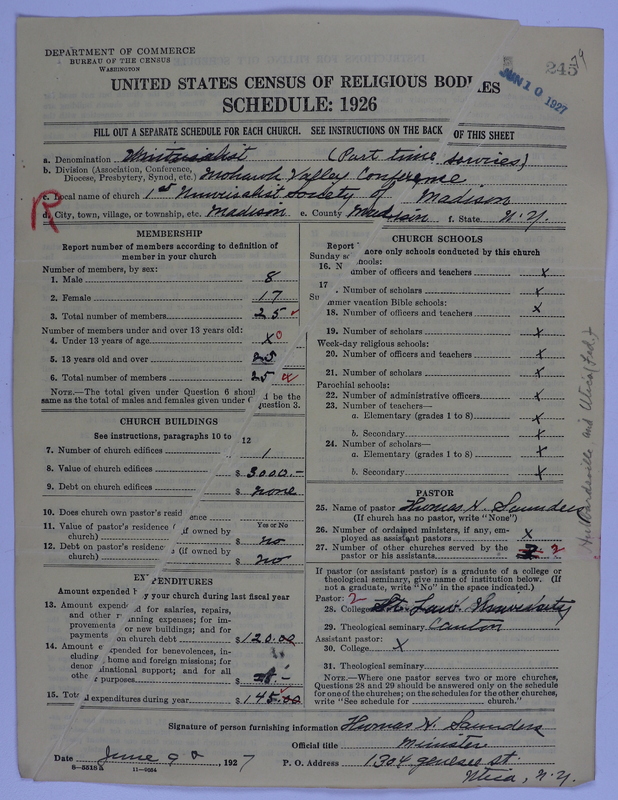 DEPARTMENT OF COMMERCE
BUREAU OF THE CENSUS
WASHINGTON
245
JUN 10 1927
UNITED STATES CENSUS OF RELIGIOUS BODIES
SCHEDULE: 1926
FILL OUT A SEPARATE SCHEDULE FOR EACH CHURCH. SEE INSTRUCTIONS ON THE BACK OF THIS SHEET
a. Denomination (Part time services)
b. Division (Association, Conference, Diocese, Presbytery, Synod, etc.) Mohawk Valley Conference
c. Local name of church 1st Universalist Society of Madison
R
d. City, town, village, or township, etc. Madison e. County Madison f. State N.Y.
MEMBERSHIP
Report number of members according to definition of
member in your church
Number of members, by sex:
1. Male 8
2. Female 17
3. Total number of members 25
Number of members under and over 13 years old:
4. Under 13 years of age X 0
5. 13 years old and over 25
6. Total number of members 25
NOTE.—The total given under Question 6 should be the
same as the total of males and females given under Question 3.
CHURCH BUILDINGS
See instructions, paragraphs 10 to 12
7. Number of church edifices 1
8. Value of church edifices $ 3000.—
9. Debt on church edifices $ none
10. Does church own pastor's residence
Yes or No
11. Value of pastor's residence (if owned by
church) $ no
12. Debt on pastor's residence (if owned by
church) $ no
EXPENDITURES
Amount expended by your church during last fiscal year
13. Amount expended for salaries, repairs,
and other running expenses; for im-
provements or new buildings; and for
payments on church debt $ 120.00
14. Amount expended for benevolences, in-
cluding home and foreign missions; for
denominational support; and for all
other purposes $
15. Total expenditures during year $ 145.00
CHURCH SCHOOLS
Report here only schools conducted by this church
Sunday schools:
16. Number of officers and teachers X
17. Number of scholars X
Summer vacation Bible schools:
18. Number of officers and teachers X
19. Number of scholars X
Week-day religious schools:
20. Number of officers and teachers X
21. Number of scholars X
Parochial schools:
22. Number of administrative officers X
23. Number of teachers—
a. Elementary (grades 1 to 8) X
b. Secondary X
24. Number of scholars—
a. Elementary (grades 1 to 8) X
b. Secondary X
PASTOR
25. Name of pastor Thomas H. Saunders
(If church has no pastor, write "None")
26. Number of ordained ministers, if any, em-
ployed as assistant pastors X
27. Number of other churches served by the
pastor or his assistants 2
If pastor (or assistant pastor) is a graduate of a college or
theological seminary, give name of institution below. (If
not a graduate, write "No" in the space indicated.)
Pastor:
28. College St. Law. University
29. Theological seminary Canton
Assistant pastor:
30. College X
31. Theological seminary
NOTE.—Where one pastor serves two or more churches,
Questions 28 and 29 should be answered only on the schedule
for one of the churches; on the schedules for the other churches,
write "See schedule for church."
Signature of person furnishing information Thomas H. Saunders
Official title Minister
Date June 9, 1927 P. O. Address 1304 Genesee st.
Utica, N.Y.
8—5518a 11—9084